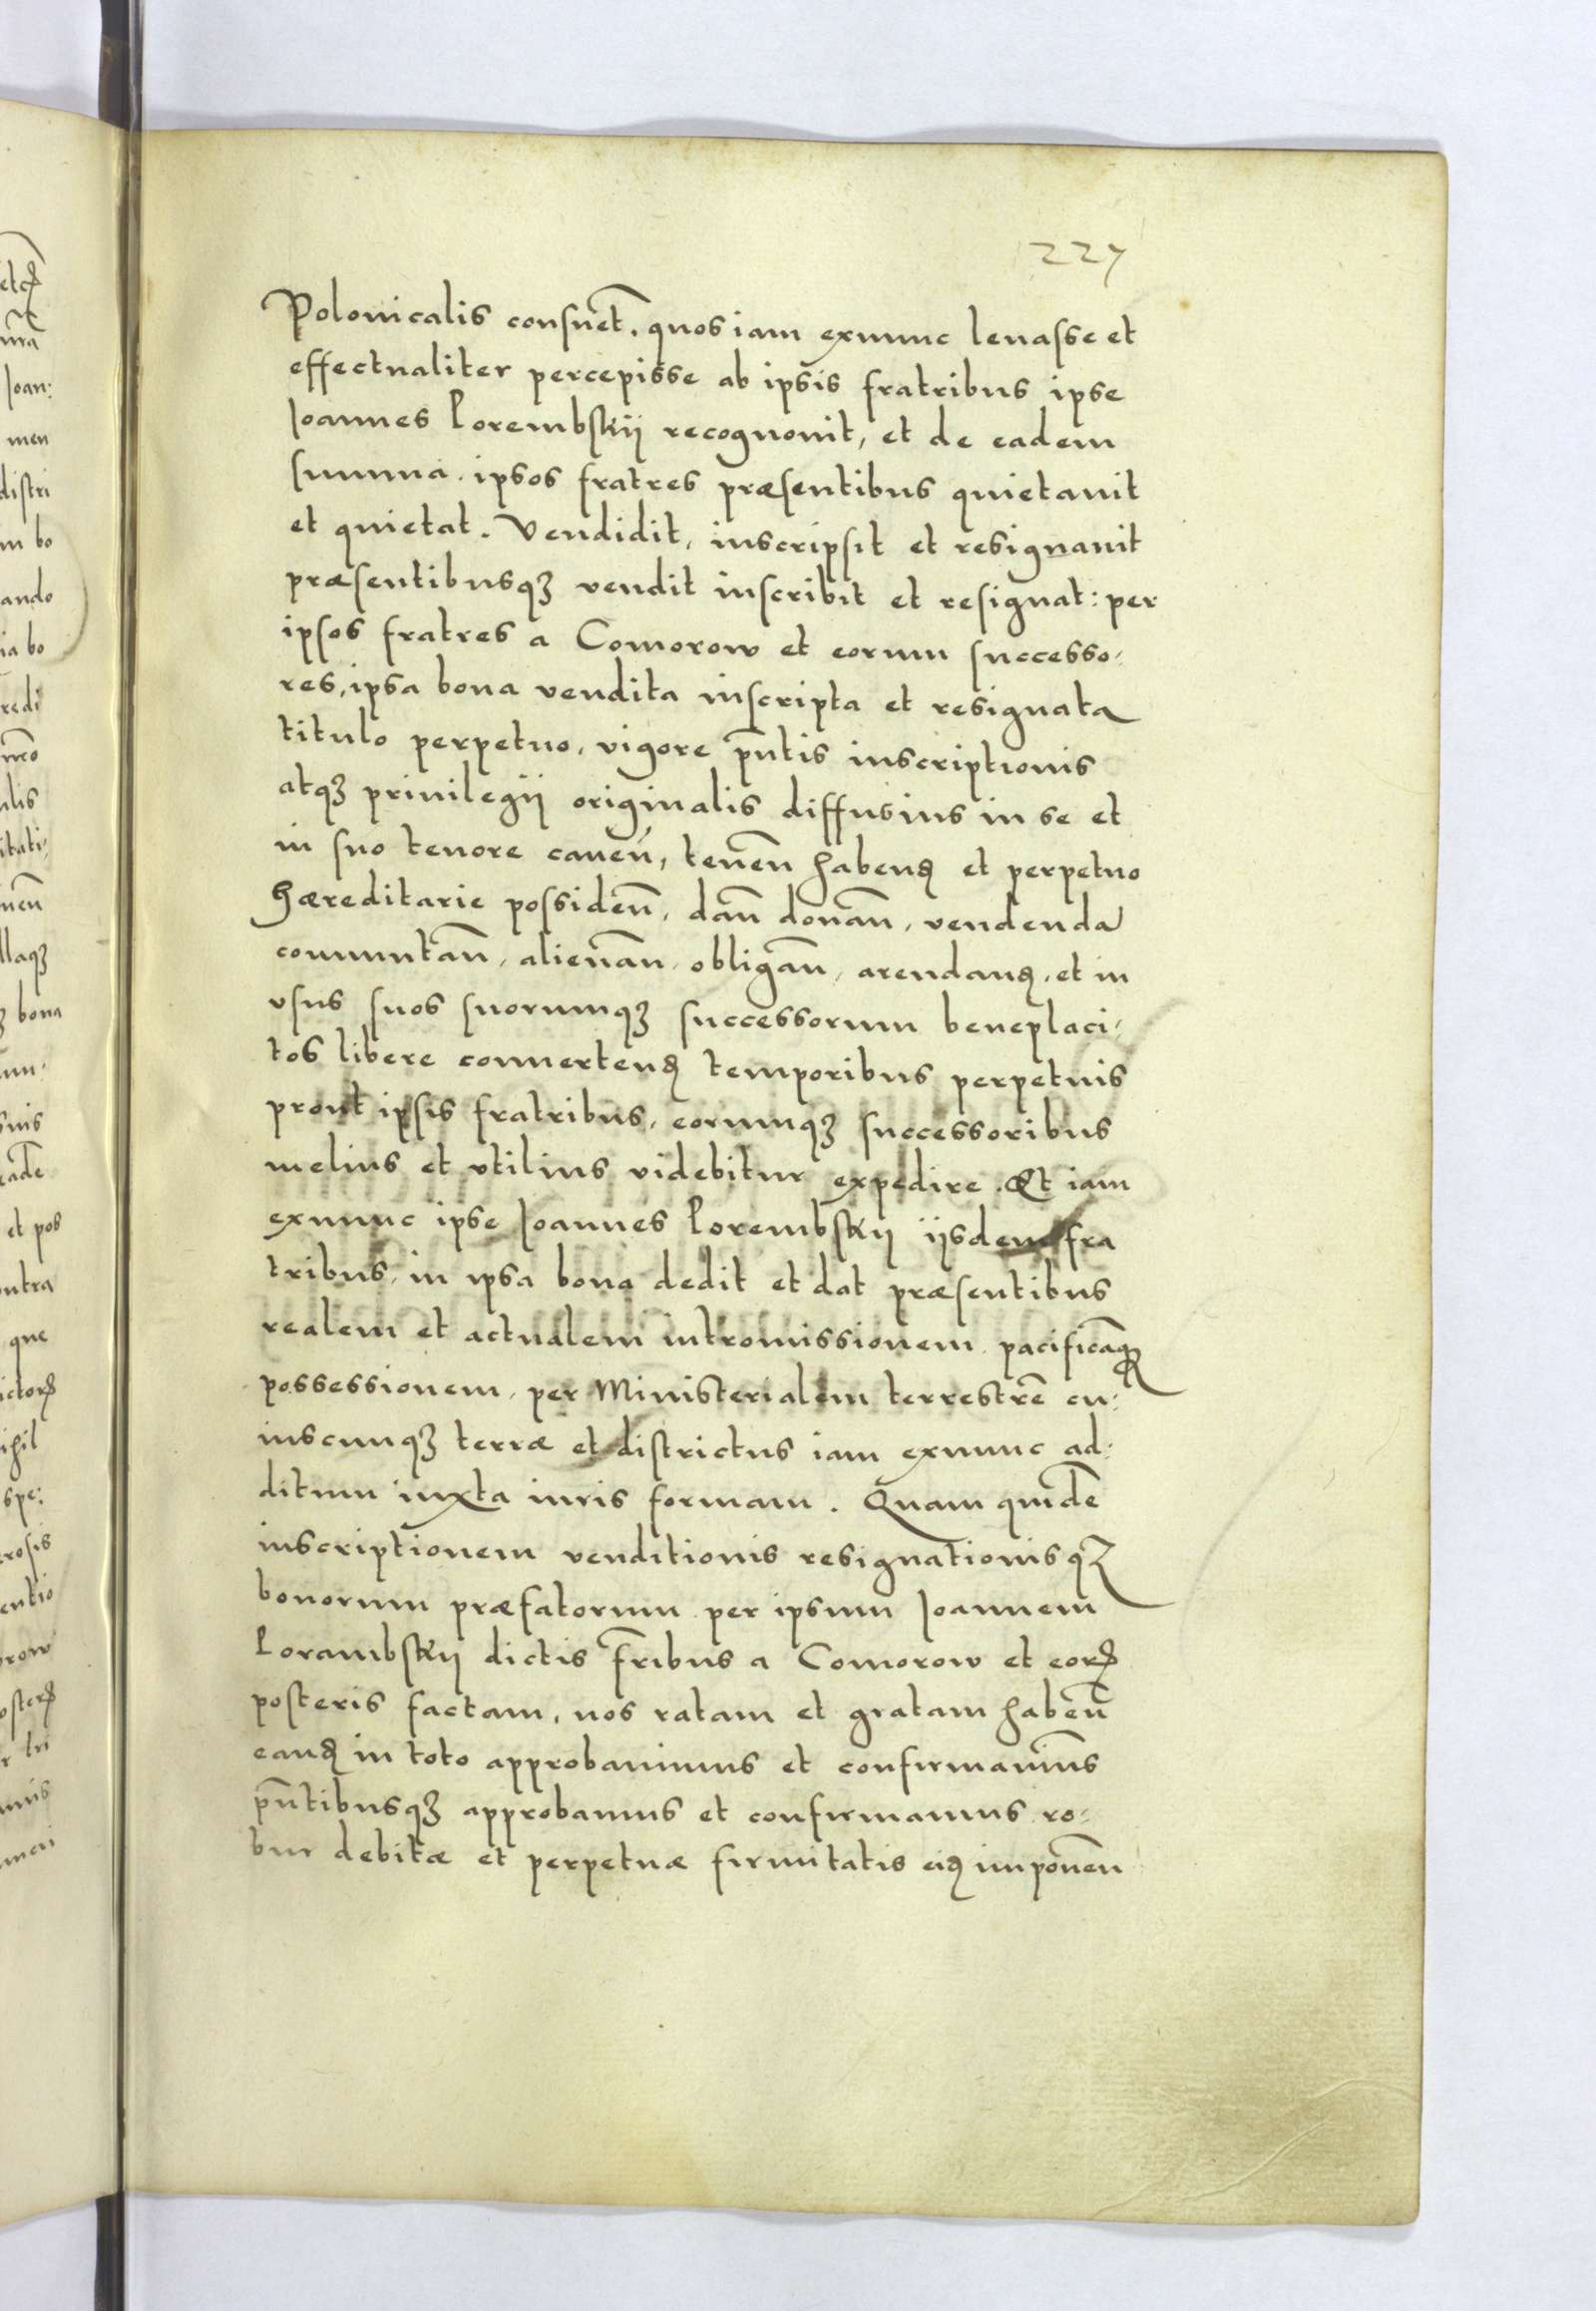 227
Polonicalis consuet̄. quos iam exnunc leuasse et
effectualiter percepisse ab ipsis fratribus ipse
Joannes Porembskij recognouit, et de eadem
summa. ipsos fratres præsentibus quietauit
et quietat. Vendidit, inscripsit et resignauit
præsentibusqȝ vendit inscribit et resignat: per
ipsos fratres a Comorow et eorum successo-
res, ipsa bona vendita inscripta et resignata
titulo perpetuo, vigore p̄ntis inscriptionis
atqȝ priuilegij originalis diffusius in se et
in suo tenore cauen̄, tenen̄ habenꝭ et perpetuo
hæreditarie possiden̄, dan̄ donan̄, vendenda
commutan̄, alienan̄, obligan̄, arendanꝭ, et in
vsus suos suorumqȝ successorum beneplaci-
tos libere conuertenꝭ temporibus perpetuis
prout ipsis fratribus, eorumqȝ successoribus
melius et vtilius videbitur expedire. Et iam
exnunc ipse Joannes Porembskij ijsdem fra
tribus, in ipsa bona dedit et dat præsentibus
realem et actualem intromissionem pacificāqꝫ
possessionem, per Ministerialem terrestrē cu-
iuscunqȝ terræ et districtus iam exnunc ad-
ditum iuxta iuris formam. Quam quidē
inscriptionem venditionis resignationisqȝ
bonorum præfatorum per ipsum Joannem
Porambskij dictis fr̄ibus a Comorow et eorꝝ
posteris factam, nos ratam et gratam haben̄
eanꝭ in toto approbauimus et confirmauim̄s
p̄ntibusqȝ approbamus et confirmamus ro-
bur debitæ et perpetuæ firmitatis eiꝭ imponen̄